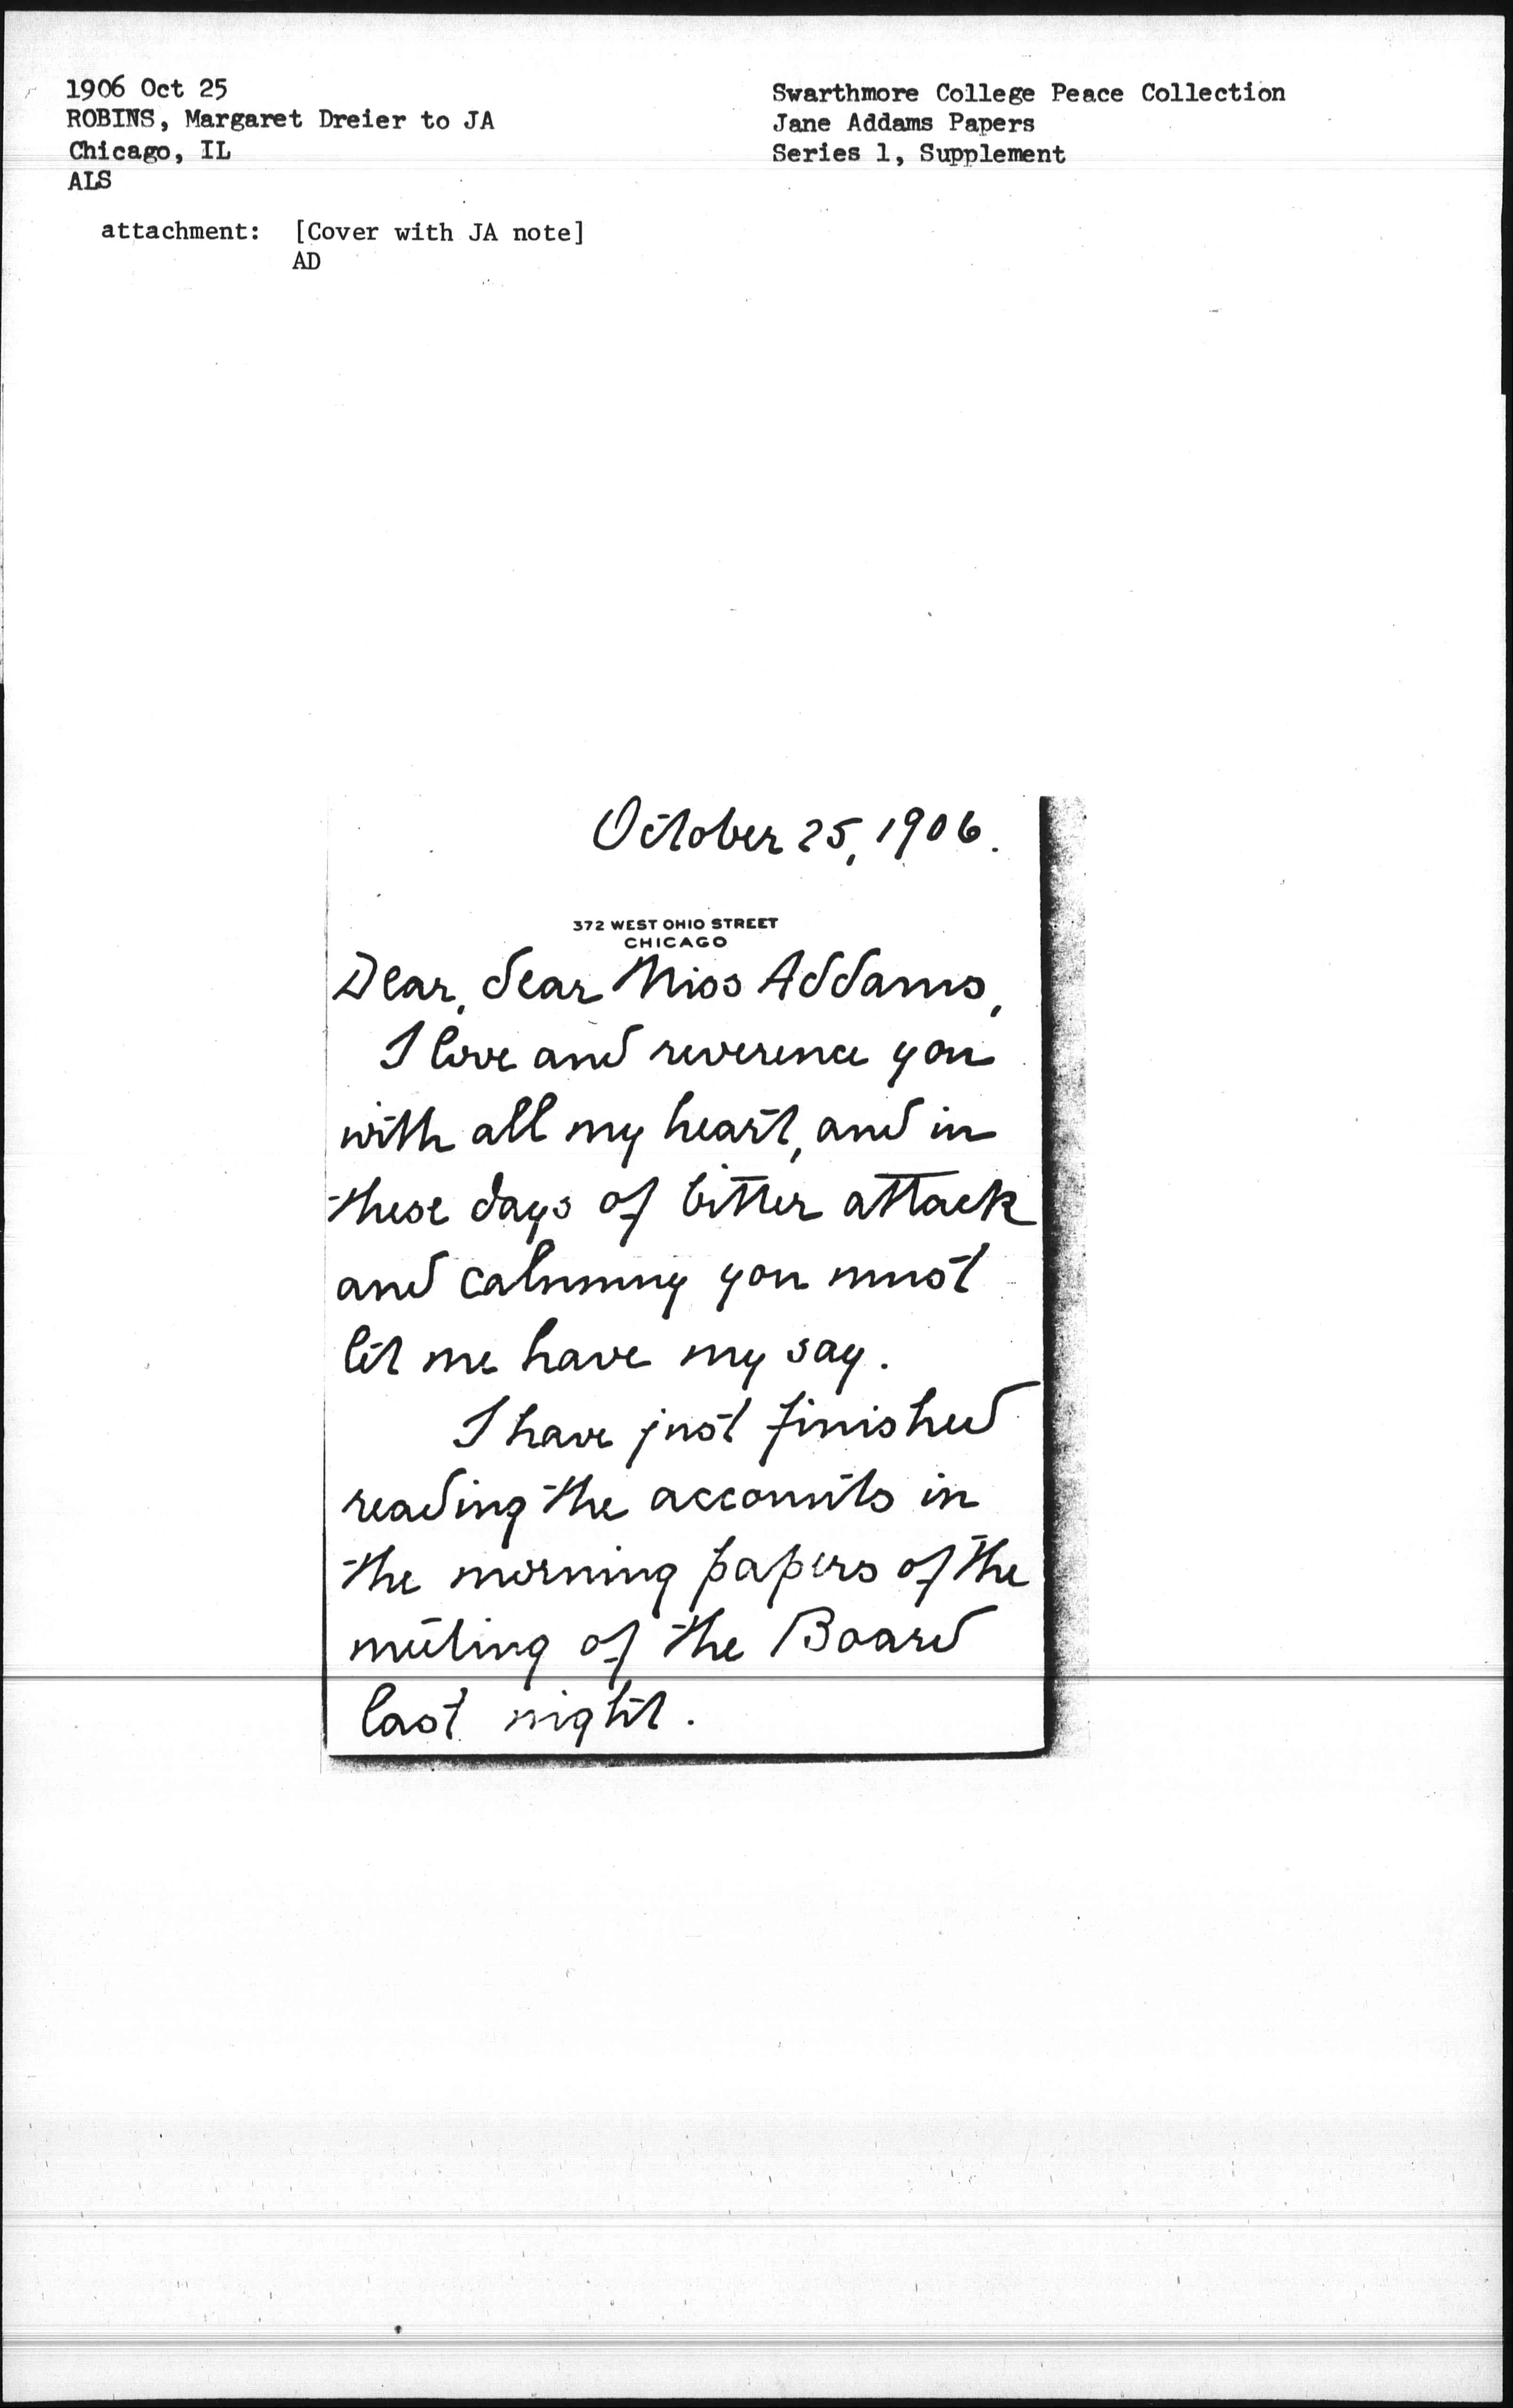 1906 Oct 25
ROBINS, Margaret Dreier to JA
Chicago, IL
ALS
attachment: [Cover with JA note]
AD
Swarthmore College Peace Collection
Jane Addams Papers
Series 1, Supplement
October 25, 1906.
372 WEST OHIO STREET
CHICAGO
Dear, dear Miss Addams,
I love and reverence you
with all my heart, and in
these days of bitter attack
and calumny you must
let me have my say.
I have just finished
reading the accounts in
the morning papers of the
meeting of the Board
last night.